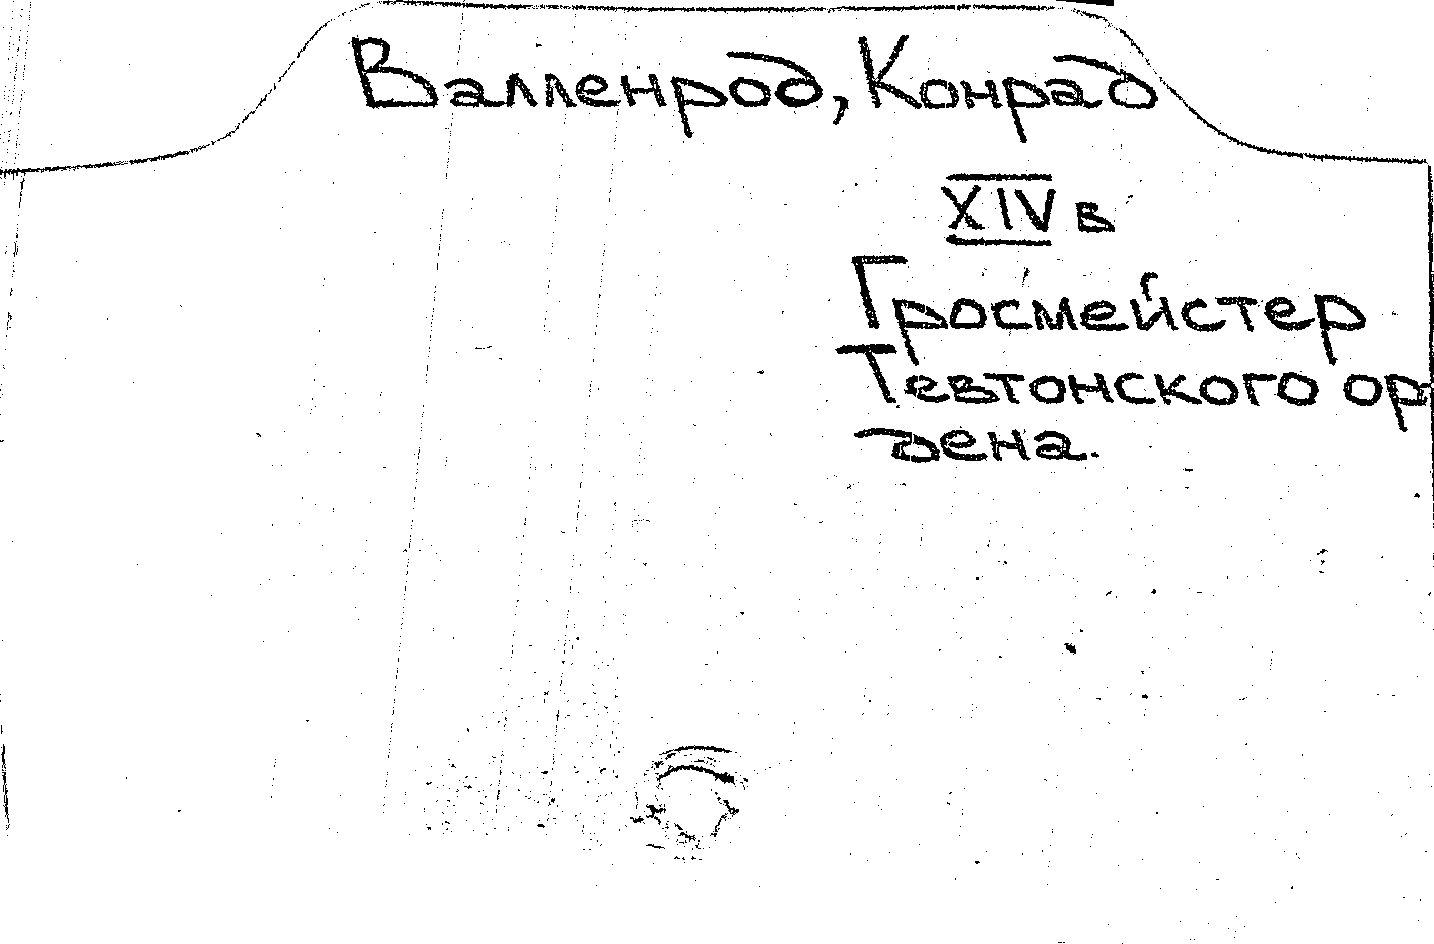 Валленрод, Конрад
XIV в
Гросмейстер
Тевтонского ор
дена.